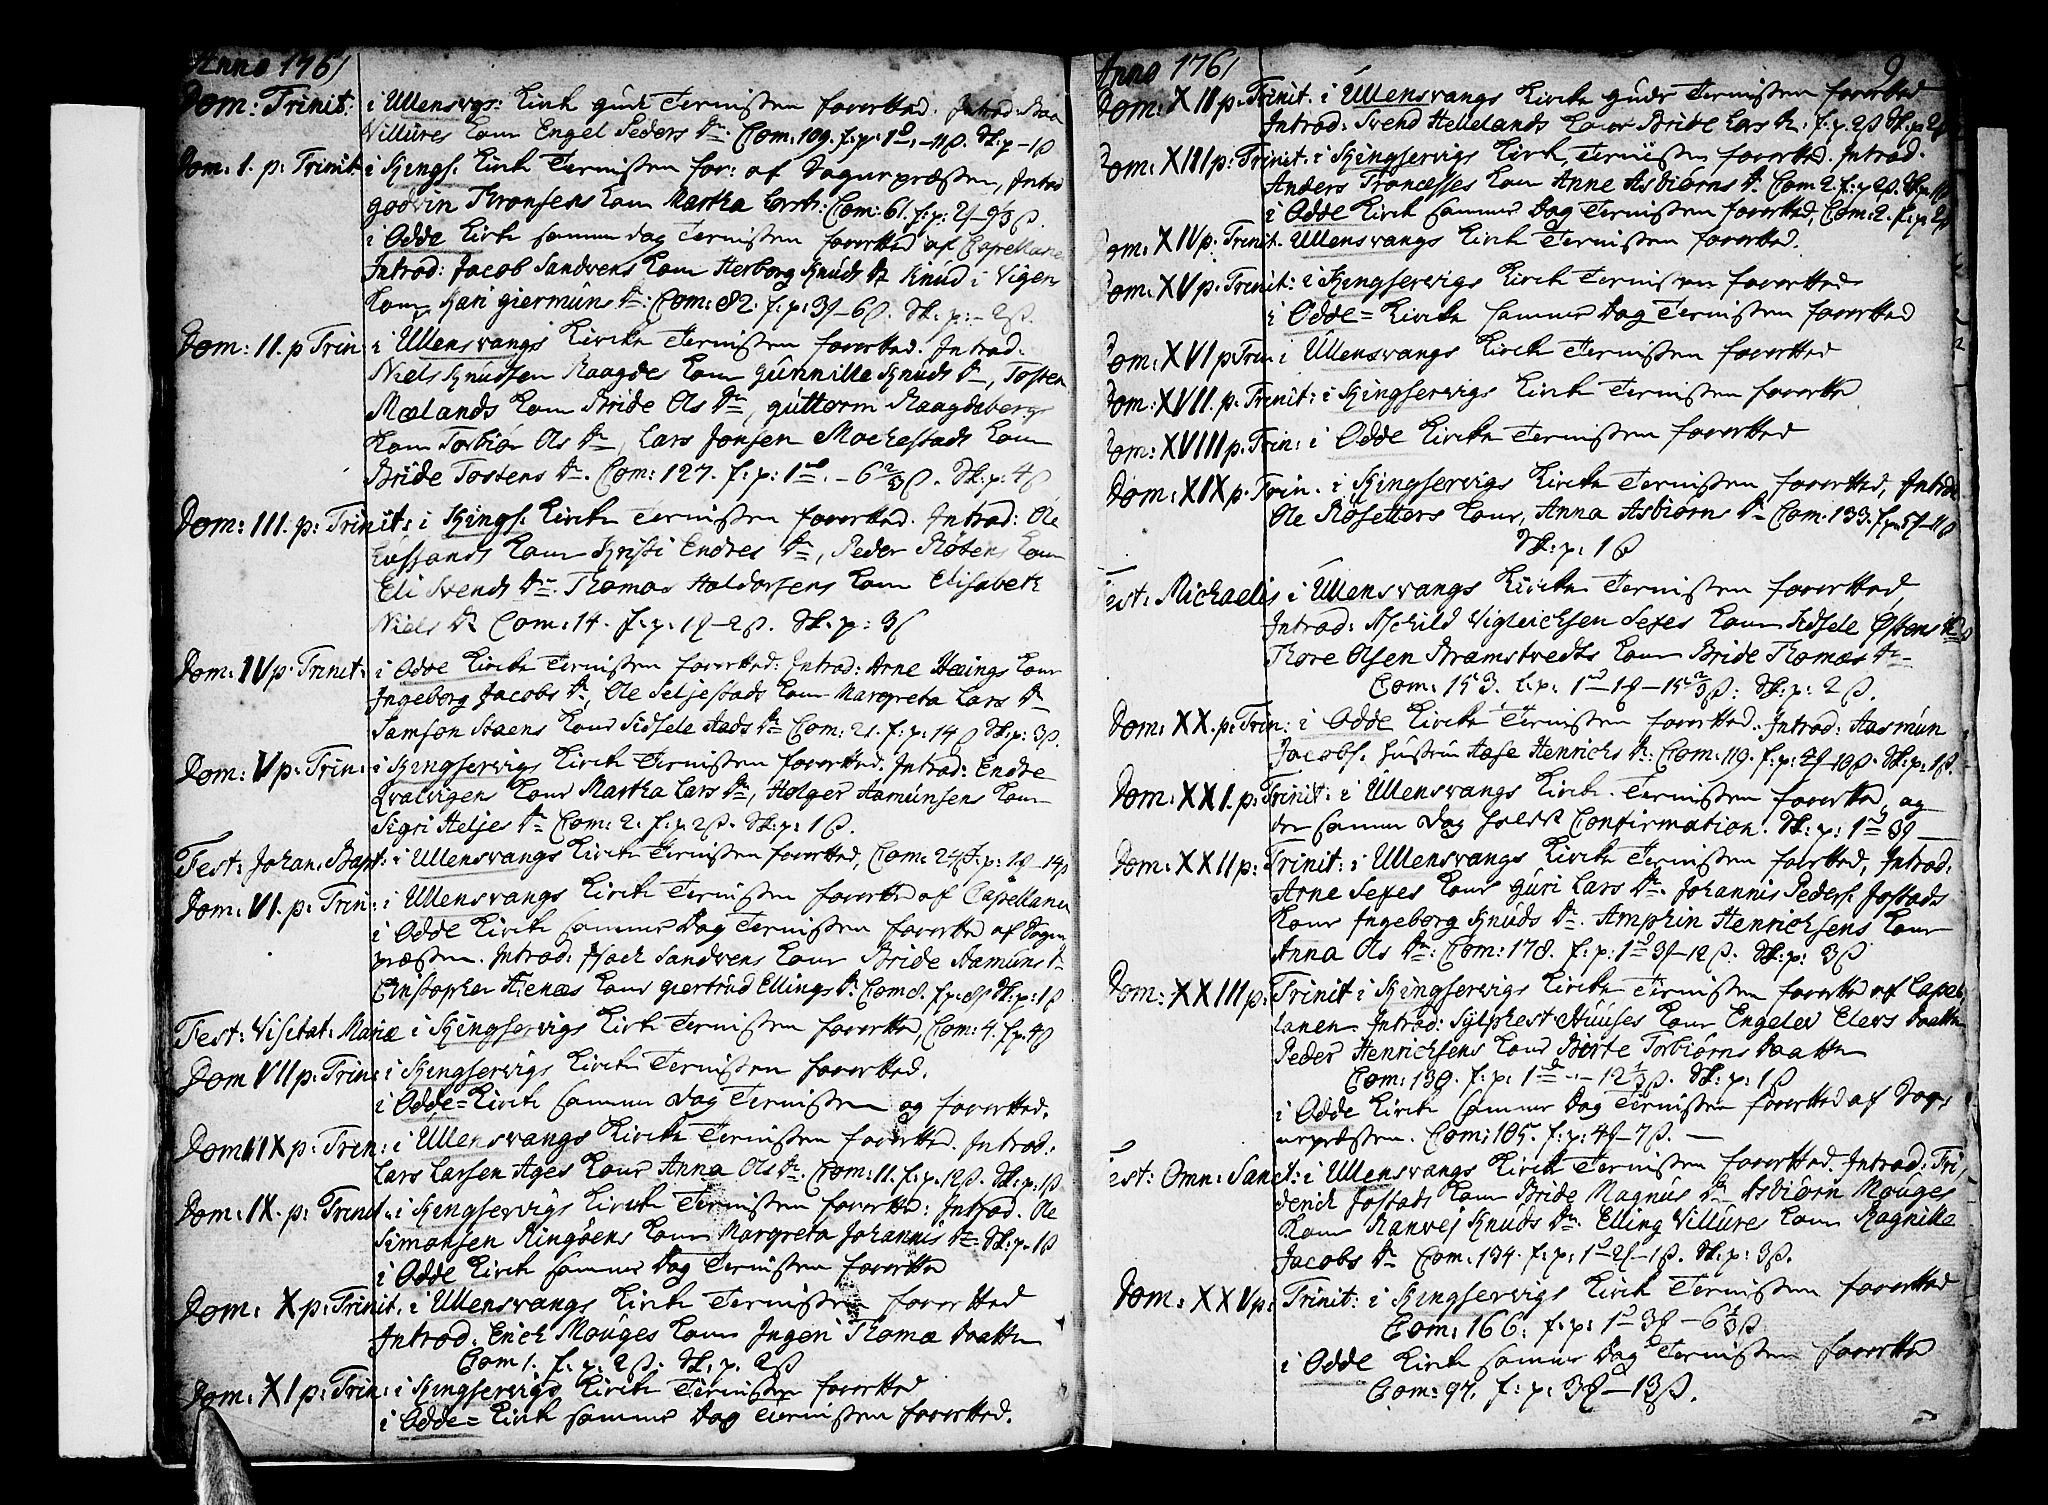 Anno 1761
Dom: Trinit: i Ullensvgs: Kirk guds Tienisten forretted. Introd:
Villures Kone Engel Peders Dr: Com: 109. f: p: 1 d - 11 ß. Sk: p - 1 ß
Dom: 1. p: Trinit i Kings. Kirk Tienisten for: af Sognepræsten, Introd
godvin Thronsens Kone Martha Com: 61. f: p: 2
i Odde Kirk samme dag Tienisten forretted af Capellane
Introd: Jacob Sandvens Kone Herborg Knuds Dr Knud i Vigen
Kone Kari giermuns Dr: Com: 82. f: p: 3 - 6 ß. Sk: p: - 2 ß.
Dom: II. p Trin: i Ullensvangs Kircke Tienisten forretted. Introd.
Niels Knudsen Raagdes Kone gunnille Knuds Dr, Tosten
Mælands Kone Bride Ols Dr, guttorm Raagdebergs
Kone Torbiør Ols Dr, Lars Jonsen Mockestads Kone
Bride Tostens Dr. Com: 127. f: p: 1 - 6 2/3 ß. Sk: p: 4 ß
Dom: III. p: Trinit: i Kings. Kirck Tienisten forretted. Introd: Ole
Kone Kristi Endres Dr, Peder Røtens Kone
Eli Svends Dr. Thomas Haldorsens Kone Elisabeth
Niels Dr Com: 14. f: p: 1 - 2 ß. Sk: p: 3 ß
Dom: IV p: Trinit: i Odde Kircke Tienisten forretted: Introd: Arne Hæings Kone
Ingeborg Jacobs Dr, Ole Seljestads Kone Margreta Lars Dr
Samson Staens Kone Sidsele Aads Dr Com: 21. f: p: 14 ß Sk: p: 3 ß.
Dom: V p: Trin: i Kingservigs Kirck Tienisten forretted. Introd: Endre
Qvalvigens Kone Martha Lars Dr, Holger Aamunsens Kone
Sigri Heljes Dr Com: 2. f: p. 2 ß. Sk: p: 1 ß.
Fest: Johan: Bapt: i Ullensvangs Kircke Tienisten forretted, Com: 24 f: p: 1 - 14 ß
Dom: VI. p: Trin: i Ullensvangs Kirck Tienisten forretted af Capellanen
i Odde Kirck samme Dag Tienisten forretted af Sogne
præsten. Introd: Isach Sandvens Kone Bride Aamuns Dr
Christopher Kone giertrud Ellings Dr Com 8. f: p: 8 ß Sk: p: 1 ß
Fest: Visitat: Mariæ i Kingservigs Kirck Tienisten forretted, Com: 4. f: p: 4 ß
Dom VII p: Trin: i Kingservigs Kircke Tienisten forretted.
i Odde= Kirck samme Dag Tienisten og forretted.
Dom IIX p: Tren: i Ullensvangs Kircke Tienisten forretted. Introd:
Lars Larsen Ages Kone Anna Ols Dr. Com: 11. f: p. 12 ß. Sk: p: 1 ß
Dom: IX. p: Trinit. i Kingservigs Kircke Tienisten forrette: Introd. Ole
Simonsen Ringøens Kone Margreta Johannis Dr: Sk: p. 1 ß
i Odde Kirck samme Dag Tienisten forretted
Dom: X p: Trinit. i Ullensvangs Kirck Tienisten forretted
Introd. Erich Mouges Kone Ingeri Thomæ Daatter
Com 1. f: p. 2 ß: Sk: p. 2 ß
Dom: XI p: Trin: i Kingservigs Kirck Tienisten forretted
i Odde= Kirck samme Dag Tienisten forretted.
Anno 1761 9
Dom: XII p: Trinit. i Ullensvangs Kircke guds Tienisten forretted
Introd: Svend Hellelands Kone Bride Lars Dr: f: p. 2 ß Sk: p: 2 ß
Dom: XIII p: Trinit: i Kingservigs Kirck Tienisten forretted. Introd.
Anders Trones Kone Anne Asbiørns Dr Com 2. f: p 2 ß.
i Odde Kirck samme Dag Tienisten forretted, Com: 2. f: p. 2 ß
Dom: XIV p: Trinit. Ullensvangs Kirck Tienisten forretted.
Dom: XV p: Trinit: i Kingservigs Kirck Tienisten forretted
i Odde= Kircke samme Dag Tienisten forretted
Dom: XVI p Trin i Ullensvangs Kirck Tienisten forretted
Dom: XVII. p: Trinit: i Kingservigs Kirck Tienisten forretted
Dom: XVIII p: Trin: i Odde Kircke Tienisten forretted
Dom: XIX p: Trin. i Kingservigs Kircke Tienisten forretted, Introd
Ole Røsetters Kone, Anna Asbiørns Dr Com: 133. f: p: 5 - 11 ß
Sk: p: 1 ß
Fest: Michaelis i Ullensvangs Kircke Tienisten forretted,
Introd: Aschild Vigleichsen Sexes Kone Sidsele Østens Dr
Thore Olsen Bramstvedts Kone Bride Thomæs Dr
Com: 153. f: p: 1 d 1 - 15 2/3 ß: Sk: p: 2 ß.
Dom: XX. p: Trin: i Odde Kircke Tienisten forretted. Introd: Aasmun
Jacobs. Hustru Aase Henrichs Dr: Com: 119. f: p: 2 - 10 ß. Sk: p: 1 ß.
Dom: XXI. p: Trinit: i Ullensvangs Kirck. Tienisten forretted, og
den samme Dag holdt Confirmation. Sk: p: 1 d 3
Dom: XXII p: Trinit: i Ullensvangs Kircke Tienisten forretted, Introd:
Arne Sexes Kone guri Lars Dr. Johannis Peders. Jostads
Kone Ingeborg Knuds Dr. Amphin Henrichsens Kone
Anna Ols Dr: Com: 178. f: p: 1 d 3 - 12 ß. Sk: p: 3 ß
Dom: XXIII p: Trinit i Kingservigs Kircke Tienisten forretted af Capel
lanen Introd: Sylphest Huuses Kone Engelev Elevs Daatter
Peder Henrichsens Kone Birte Torbiørns Daatter
Com: 130. f: p: 1 d - 12 1/3 ß. Sk: p: 1 ß
i Odde Kirck samme Dag Tienisten forretted af Sog
nepræsten. Com: 105. f: p: 4 - 7 ß. —
Fest: Omn: Sanct: i Ullensvangs Kirck Tienisten forretted. Introd: Fri
derich Jostads Kone Bride Magnus Dr Asbiørn Mouges
Kone Ranvej Knuds Dr. Elling Villures Kone Ragnilla
Jacobs Dr Com: 134. f: p: 1 d 2 - 1 ß. Sk: p: 3 ß.
Dom: XXV p: Trinit: i Kingservigs Kirck Tienisten forretted
Com: 166: f: p: 1 d 3 - 6 1/3 ß
i Odde Kirck samme Dag Tienisten forretted
Com: 97. f: p: 3 - 13 ß.